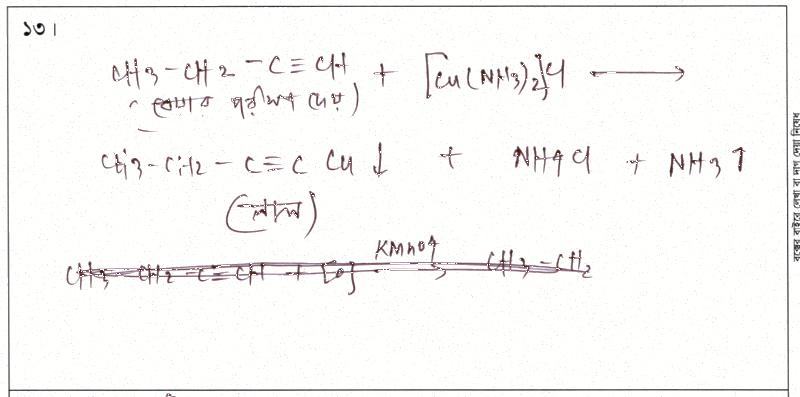 ১৩।
CH3 - CH2 - C ≡ CH + [Cu(NH3)2]Cl ⟶
পরীক্ষা দেয়)
CH3 - CH2 - C ≡ C Cu ↓ + NH4Cl + NH3 ↑
(লাল)
KMnO4
CH3 - CH2 - C ≡ CH + [O] ⟶ CH3 - CH2
বক্সের বাইরে লেখা বা দাগ দেয়া নিষেধ